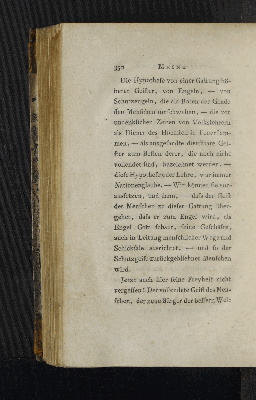 350 MEINE
Die Hypothese von einer Gattung hö-
herer Geister, von Engeln, — von
Schutzengeln, die als Boten der Gnade
den Menschen umschweben, — die vor
undenklichen Zeiten von Volkslehrern
als Diener des Höchsten in Feuerflam-
men, — als ausgesandte dienstbare Gei-
ster zum Besten derer, die noch nicht
vollendet sind, bezeichnet werden, —
diese Hypothese oder Lehre, war immer
Nationenglaube. — Wir können sie vor-
aussetzen, und dann, — dass der Geist
des Menschen zu dieser Gattung über-
gehet, dass er zum Engel wird, als
Engel Gott schauet, seine Geschäfte,
auch in Leitung menschlicher Wege und
Schicksale ausrichtet, — und so der
Schutzgeist zurückgebliebner Menschen
wird.
Jetzt auch hier seine Freyheit nicht
vergessen! Der vollendete Geist des Men-
schen, der neue Bürger der bessern Welt